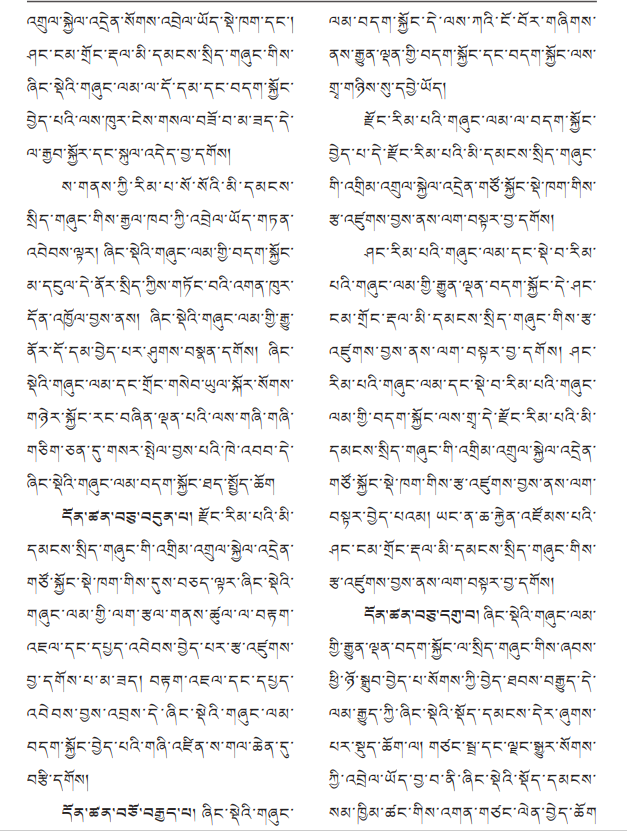 འགྲུལ་སྐྱེལ་འདྲེན་སོགས་འབྲེལ་ཡོད་སྡེ་ཁག་དང་།
ཤང་ངམ་གྲོང་རྡལ་མི་དམངས་སྲིད་གཞུང་གིས་
ཞིང་སྡེའི་གཞུང་ལམ་ལ་དོ་དམ་དང་བདག་སྐྱོང་
བྱེད་པའི་ལས་ཁུར་ངེས་གསལ་བཟོ་བ་མ་ཟད་དེ་
ལ་རྒྱབ་སྐྱོར་དང་སྐུལ་འདེད་བྱ་དགོས།
ས་གནས་ཀྱི་རིམ་པ་སོ་སོའི་མི་དམངས་
སྲིད་གཞུང་གིས་རྒྱལ་ཁབ་ཀྱི་འབྲེལ་ཡོད་གཏན་
འབེབས་ལྟར། ཞིང་སྡེའི་གཞུང་ལམ་གྱི་བདག་སྐྱོང་
མ་དངུལ་དེ་ནོར་སྲིད་ཀྱིས་གཏོང་བའི་འགན་ཁུར་
དོན་འཁྱོལ་བྱས་ནས། ཞིང་སྡེའི་གཞུང་ལམ་གྱི་རྒྱུ་
ནོར་དོ་དམ་བྱེད་པར་ཤུགས་བསྣན་དགོས། ཞིང་
སྡེའི་གཞུང་ལམ་དང་གྲོང་གསེབ་ཡུལ་སྐོར་སོགས་
གཉེར་སྐྱོང་རང་བཞིན་ལྡན་པའི་ལས་གཞི་གཞི་
གཅིག་ཅན་དུ་གསར་སྤེལ་བྱས་པའི་ཁེ་འབབ་དེ་
ཞིང་སྡེའི་གཞུང་ལམ་བདག་སྐྱོང་ཐད་སྤྱོད་ཆོག
དོན་ཚན་བཅུ་བདུན་པ། རྫོང་རིམ་པའི་མི་
དམངས་སྲིད་གཞུང་གི་འགྲིམ་འགྲུལ་སྐྱེལ་འདྲེན་
གཙོ་སྐྱོང་སྡེ་ཁག་གིས་དུས་བཅད་ལྟར་ཞིང་སྡེའི་
གཞུང་ལམ་གྱི་ལག་རྩལ་གནས་ཚུལ་ལ་བརྟག་
འཇལ་དང་དཔྱད་འབེབས་བྱེད་པར་རྩ་འཛུགས་
བྱ་དགོས་པ་མ་ཟད། བརྟག་འཇལ་དང་དཔྱད་
འབེབས་བྱས་འབྲས་དེ་ཞིང་སྡེའི་གཞུང་ལམ་
བདག་སྐྱོང་བྱེད་པའི་གཞི་འཛིན་ས་གལ་ཆེན་དུ་
བརྩི་དགོས།
དོན་ཚན་བཅོ་བརྒྱད་པ། ཞིང་སྡེའི་གཞུང་
ལམ་བདག་སྐྱོང་དེ་ལས་ཀའི་ངོ་བོར་གཞིགས་
ནས་རྒྱུན་ལྡན་གྱི་བདག་སྐྱོང་དང་བདག་སྐྱོང་ལས་
གྲྭ་གཉིས་སུ་དབྱེ་ཡོད།
རྫོང་རིམ་པའི་གཞུང་ལམ་ལ་བདག་སྐྱོང་
བྱེད་པ་དེ་རྫོང་རིམ་པའི་མི་དམངས་སྲིད་གཞུང་
གི་འགྲིམ་འགྲུལ་སྐྱེལ་འདྲེན་གཙོ་སྐྱོང་སྡེ་ཁག་གིས་
རྩ་འཛུགས་བྱས་ནས་ལག་བསྟར་བྱ་དགོས།
ཤང་རིམ་པའི་གཞུང་ལམ་དང་སྡེ་བ་རིམ་
པའི་གཞུང་ལམ་གྱི་རྒྱུན་ལྡན་བདག་སྐྱོང་དེ་ཤང་
ངམ་གྲོང་རྡལ་མི་དམངས་སྲིད་གཞུང་གིས་རྩ་
འཛུགས་བྱས་ནས་ལག་བསྟར་བྱ་དགོས། ཤང་
རིམ་པའི་གཞུང་ལམ་དང་སྡེ་བ་རིམ་པའི་གཞུང་
ལམ་གྱི་བདག་སྐྱོང་ལས་གྲྭ་དེ་རྫོང་རིམ་པའི་མི་
དམངས་སྲིད་གཞུང་གི་འགྲིམ་འགྲུལ་སྐྱེལ་འདྲེན་
གཙོ་སྐྱོང་སྡེ་ཁག་གིས་རྩ་འཛུགས་བྱས་ནས་ལག་
བསྟར་བྱེད་པའམ། ཡང་ན་ཆ་རྐྱེན་འཛོམས་པའི་
ཤང་ངམ་གྲོང་རྡལ་མི་དམངས་སྲིད་གཞུང་གིས་
རྩ་འཛུགས་བྱས་ནས་ལག་བསྟར་བྱ་དགོས།
དོན་ཚན་བཅུ་དགུ་བ། ཞིང་སྡེའི་གཞུང་ལམ་
གྱི་རྒྱུན་ལྡན་བདག་སྐྱོང་ལ་སྲིད་གཞུང་གིས་ཞབས་
ཕྱི་ཉོ་སྒྲུབ་བྱེད་པ་སོགས་ཀྱི་བྱེད་ཐབས་བརྒྱུད་དེ་
ལམ་རྒྱུད་ཀྱི་ཞིང་སྡེའི་སྡོད་དམངས་དེར་ཞུགས་
པར་སྡུད་ཆོག་ལ། གཙང་སྦྲ་དང་ལྗང་སྒྱུར་སོགས་
ཀྱི་འབྲེལ་ཡོད་བྱ་བ་ནི་ཞིང་སྡེའི་སྡོད་དམངས་
སམ་ཁྱིམ་ཚང་གིས་འགན་གཙང་ལེན་བྱེད་ཆོག